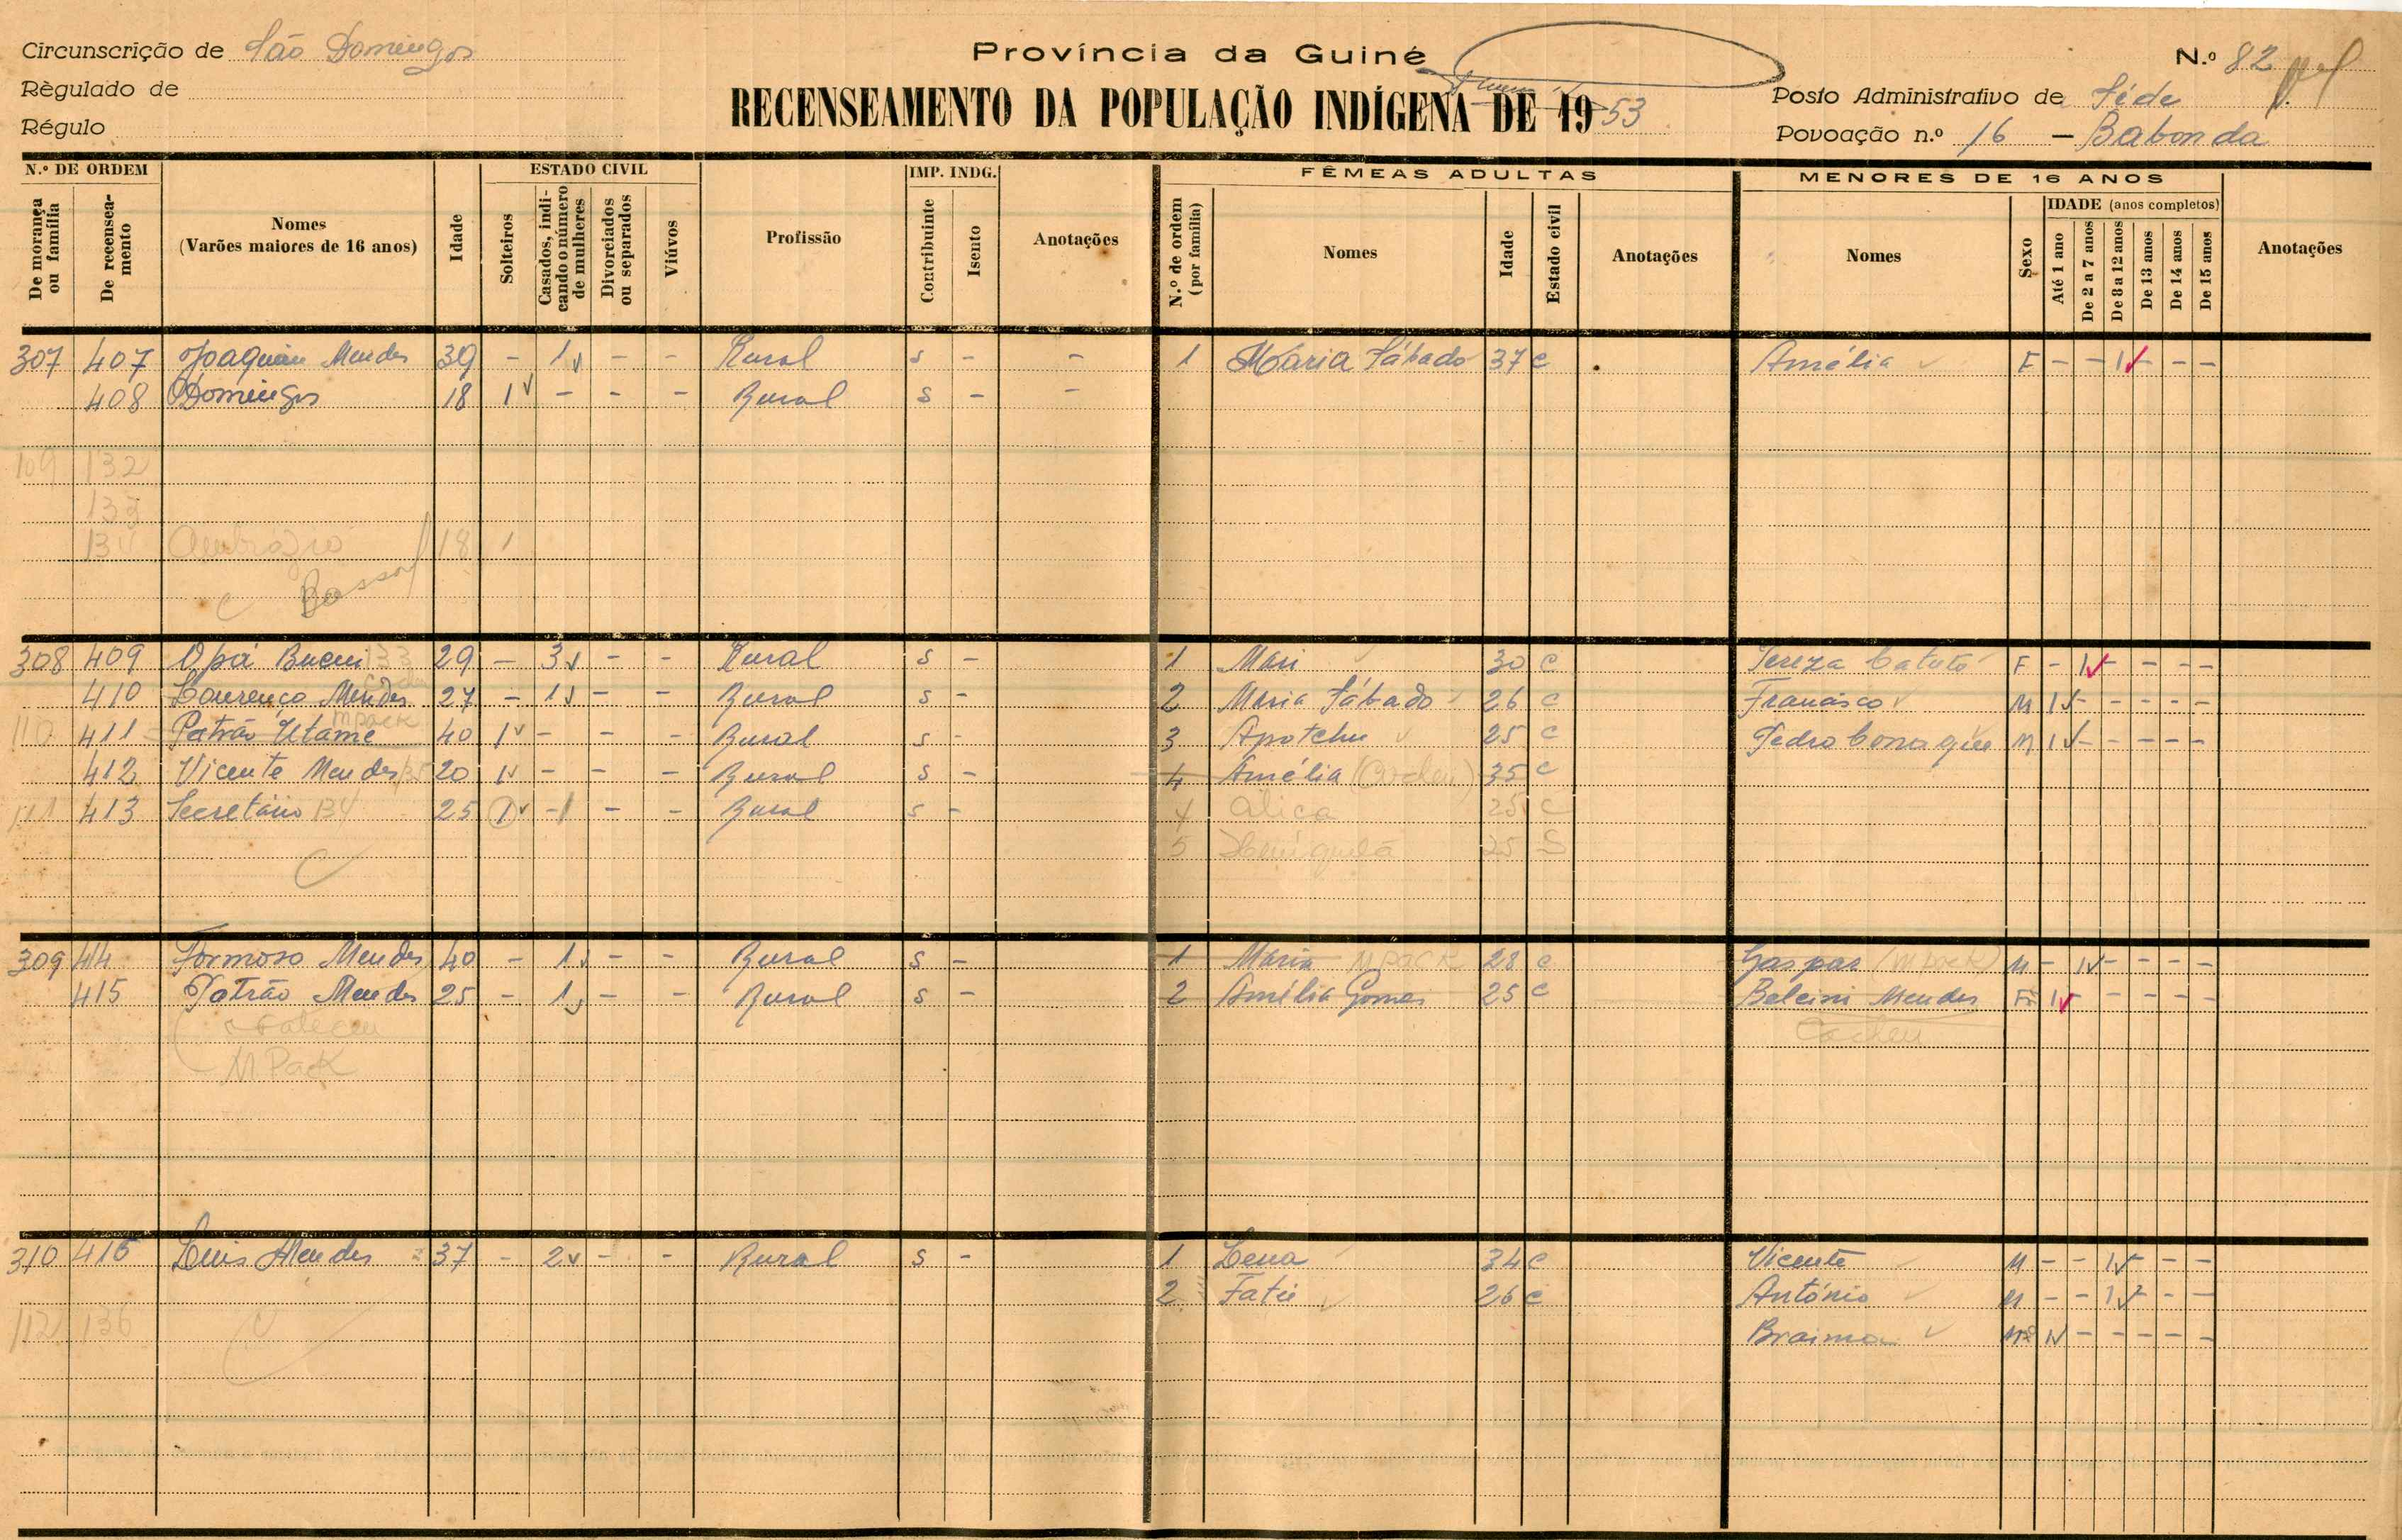 Circunscrição de São Domingos
Règulado de
Régulo
Província da Guiné
RECENSEAMENTO DA POPULAÇÃO INDÍGENA DE 1953
N.º 82
Posto Administrativo de Séde
Povoação n.º 16 — Babonda
N.º DE ORDEM
De morança ou família
De recenseamento
Nomes
(Varões maiores de 16 anos)
Idade
ESTADO CIVIL
Solteiros
Casados, indicando o número de mulheres
Divorciados ou separados
Viúvos
Profissão
IMP. INDG.
Contribuinte
Isento
Anotações
FÊMEAS ADULTAS
N.º de ordem (por família)
Nomes
Idade
Estado civil
Anotações
MENORES DE 16 ANOS
Nomes
Sexo
IDADE (anos completos)
Até 1 ano
De 2 a 7 anos
De 8 a 12 anos
De 13 anos
De 14 anos
De 15 anos
Anotações
307 407 Joaquim Mendes 39 - 1 - - Rural s - - 1 Maria Sábado 37 c Amélia F - - 1 - - -
408 Domingos 18 1 - - - Rural s - -
109 132
133
134 Ambrózio 18 1
Bassa
308 409 Opá Bucui 133 29 - 3 - - Rural s - 1 Mari 30 c Tereza Catuto F - 1 - - - -
410 Lourenço Mendes 27 - 1 - - Rural s - 2 Maria Sábado 26 c Francisco M 1 - - - - -
110 411 Patrão Utame M Pack 40 1 - - - Rural s - 3 Apotchu 25 c Pedro M 1 - - - - -
412 Vicente Mendes 20 1 - - - Rural s - 4 Amélia (Cacheu) 35 c
111 413 Secretário 134 25 1 - 1 - - Rural s - 4 Alica 25 c
5 25 S
309 414 Formoso Mendes 40 - 1 - - Rural s - 1 Maria M Pack 28 c Gaspar (M Pack) M - 1 - - - -
415 Patrão Mendes 25 - 1 - - Rural s - 2 Amélia Gomes 25 c Belcini Mendes F 1 - - - - -
Cacheu
M Pack
310 416 Luis Mendes 37 - 2 - - Rural s - 1 Lena 34 c Vicente M - - 1 - - -
2 Fatú 26 c António M - - 1 - - -
112 136 Braima M 1 - - - - -